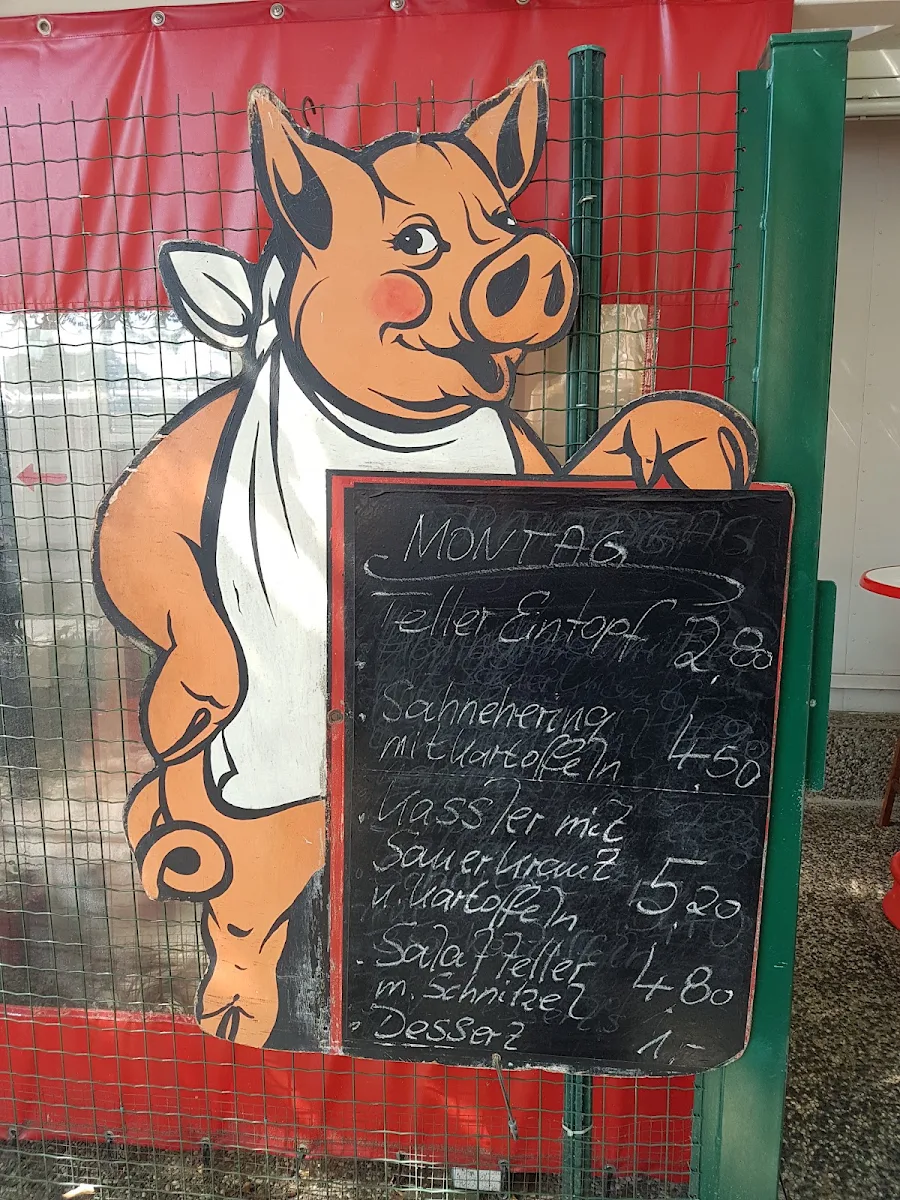 MONTAG
Teller Eintopf 2,80
Sahnehering
mit Kartoffeln 4,50
Kassler mit
Sauerkraut
u. Kartoffeln 5,20
Salatteller
m. Schnitzel 4,80
Dessert 1,-